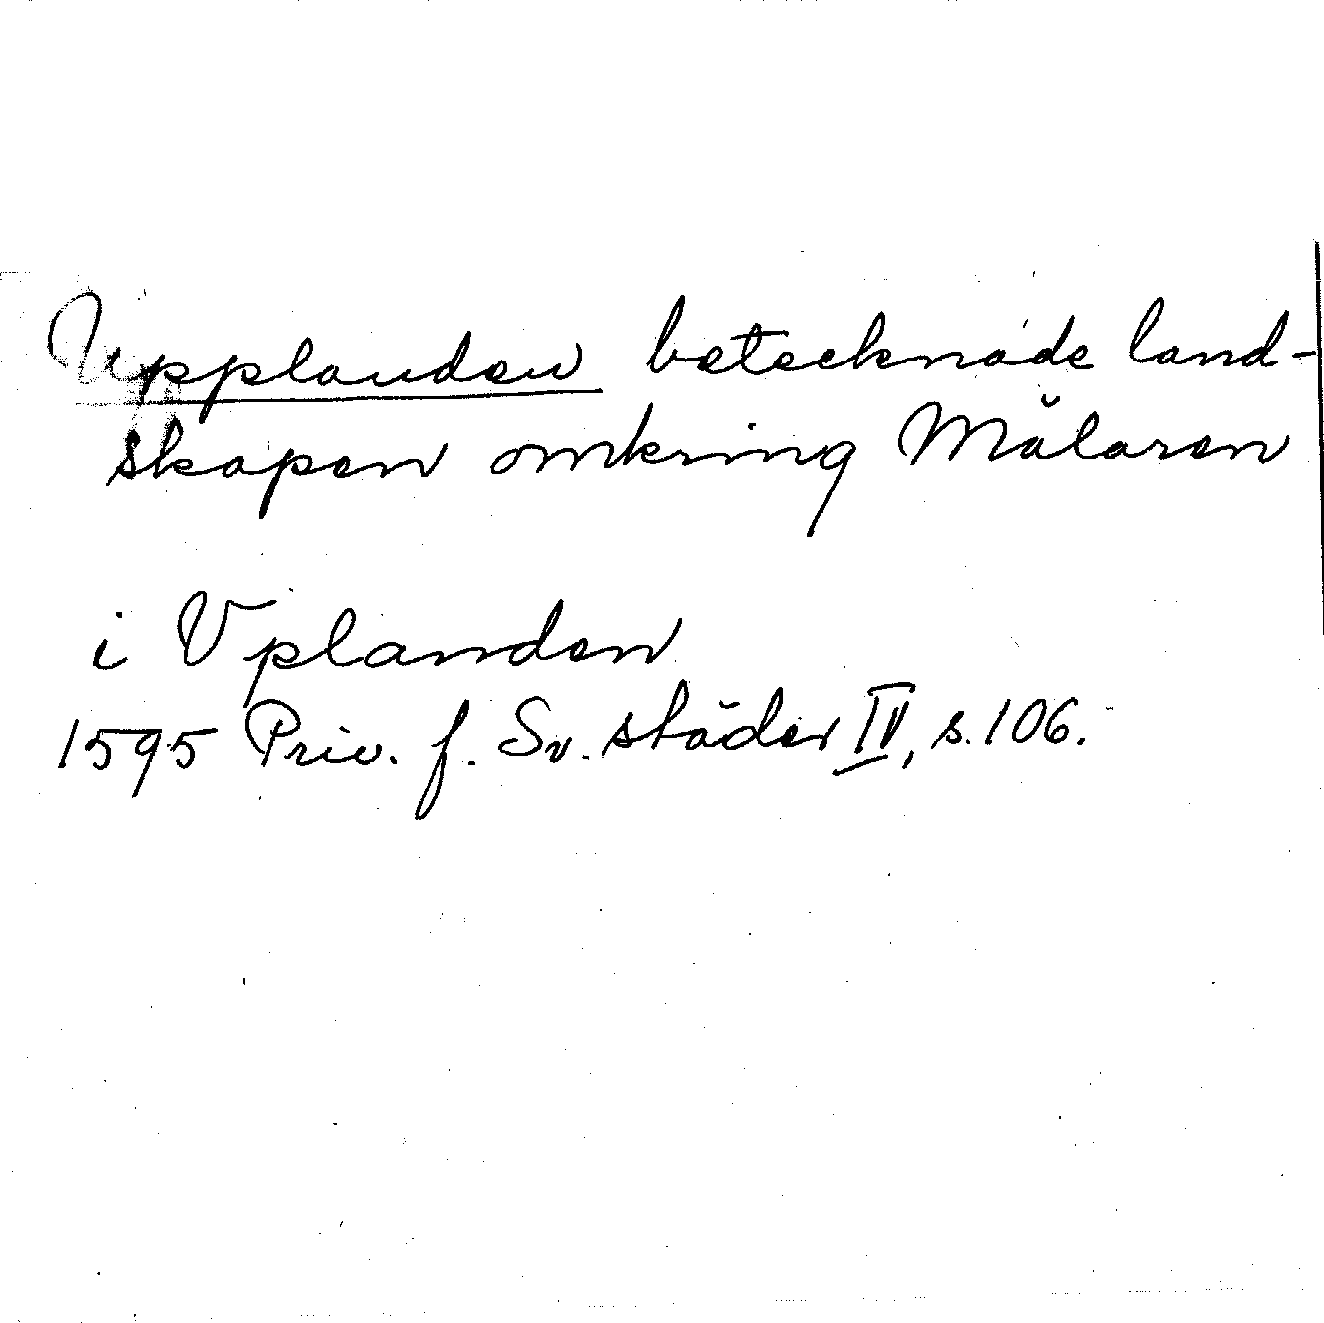 Upplanden betecknade land-
skapen omkring Mälaren
i Vplanden
1595 Priv. f. Sv. städer IV, s. 106.